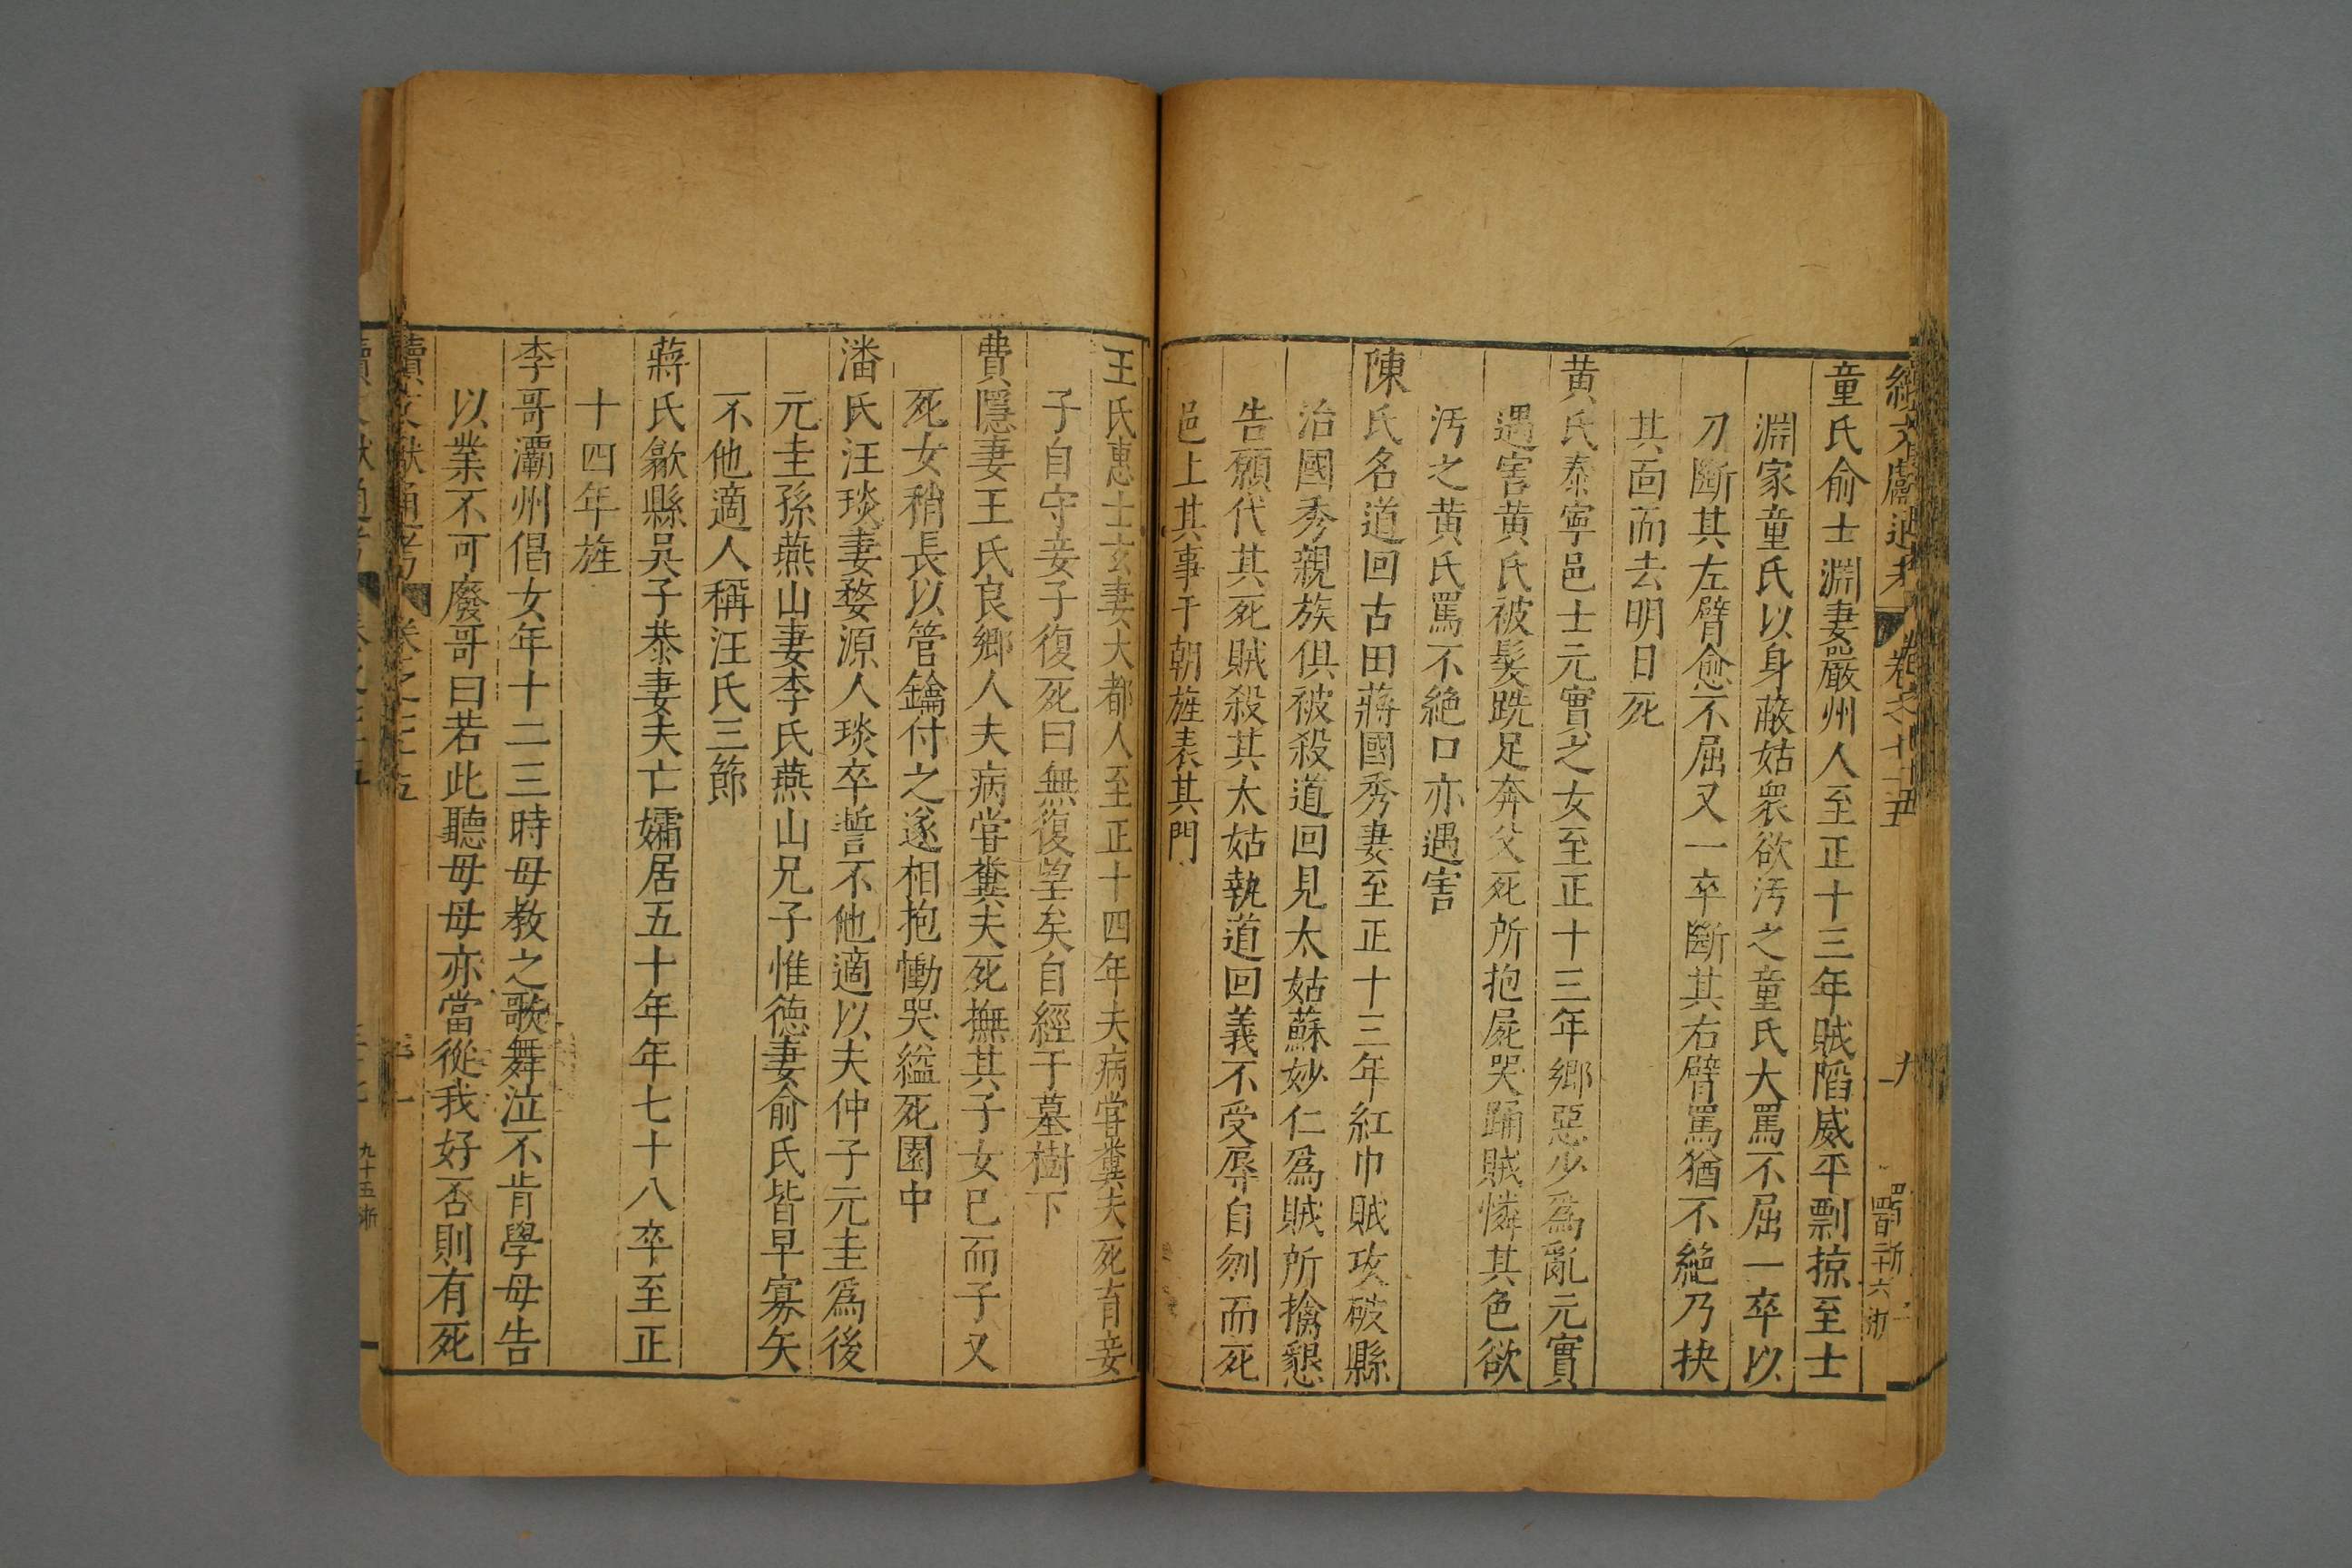 童氏俞士淵妻嚴州人至正十三年賊陷威平剽掠至士
淵家童氏以身蔽姑衆欲汚之童氏大罵不屈一卒以
刀斷其左臂愈不屈又一卒斷其右臂罵猶不絶乃抉
其面而去明日死
黄氏泰寧邑士元實之女至正十三年鄉惡少爲亂元實
遇害黄氏被髮跣足奔父死所抱屍哭踊賊憐其色欲
汚之黄氏罵不絶口亦遇害
陳氏名道回古田蔣國秀妻至正十三年紅巾賊攻破縣
治國秀親族俱被殺道回見太姑蘇妙仁爲賊所擒懇
告願代其死賊殺其太姑執道回義不受辱自刎而死
邑上其事于朝旌表其門
王氏惠士玄妻大都人至正十四年夫病嘗糞夫死育妾
子自守妾子復死曰無復望矣自經于墓樹下
費隱妻王氏良鄉人夫病嘗糞夫死撫其子女已而子又
死女稍長以管鑰付之遂相抱慟哭縊死園中
潘氏汪琰妻婺源人琰卒誓不他適以夫仲子元圭爲後
元圭孫燕山妻李氏燕山兄子惟德妻俞氏皆早寡矢
不他適人稱汪氏三節
蔣氏歙縣吳子恭妻夫亡孀居五十年年七十八卒至正
十四年旌
李哥灞州倡女年十二三時母教之歌舞泣不肯學母告
以業不可廢哥曰若此聽母母亦當從我好否則有死
續文獻通考 卷之